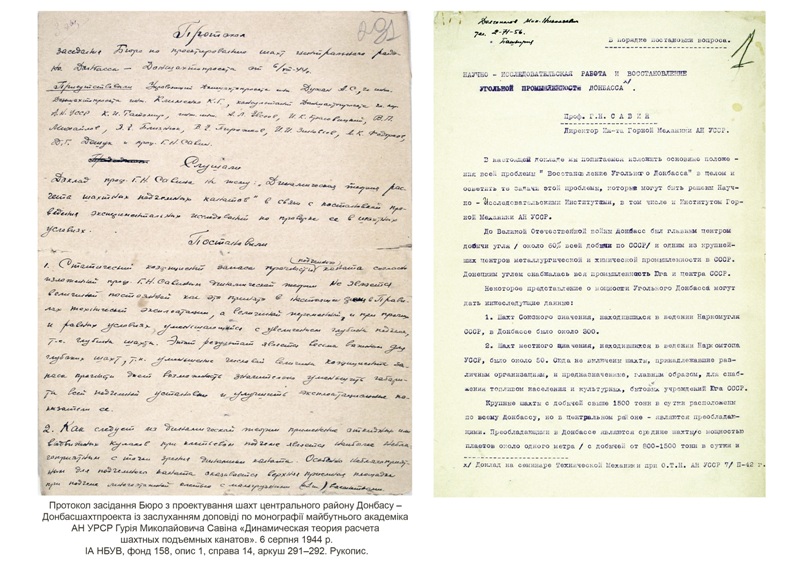 291
Протокол
заседания Бюро по проектированию шахт центрального райо-
на Донбасса — Донбассшахтопроекта от 6/VIII-44 г.
Присутствовали
К.Г.
АН УССР
и проф. Г.Н. Савин.
Слушали
Доклад проф. Г.Н. Савина на тему: „Динамическая теория рас-
чета шахтных подъемных канатов" в связи с постановкой про-
ведения экспериментальных исследований по проверке ее в шахтных
условиях.
Постановили
подъемного
1. Статический коэффициент запаса прочности каната согласно
изложенной проф. Г.Н. Савиным динамической теории не является
величиной постоянной как это принято в настоящее время в Прави-
лах технической эксплоатации, а величиной переменной, и при прочих
и равных условиях, уменьшающейся с увеличением глубины подъема,
т.е. глубины шахты. Этот результат является весьма важным для
глубоких шахт, т.к. уменьшение числовой величины коэффициента за-
паса прочности дает возможность значительно уменьшить габари-
ты всей подъемной установки и улучшить эксплоатационные по-
казатели ее.
2. Как следует из динамической теории применение
кулаков при клетьевом подъеме является наиболее небла-
гоприятным с точки зрения динамики каната. Особенно неблагоприят-
ным для подъемного каната оказывается верхняя приемная площадка
при подъеме
Протокол засідання Бюро з проектування шахт центрального району Донбасу –
Донбасшахтпроекта із заслуханням доповіді по монографії майбутнього академіка
АН УРСР Гурія Миколайовича Савіна «Динамическая теория расчета
шахтных подъемных канатов». 6 серпня 1944 р.
ІА НБУВ, фонд 158, опис 1, справа 14, аркуш 291–292. Рукопис.
Николаевич
тел. 2-91-56.
В порядке постановки вопроса.
1
НАУЧНО - ИССЛЕДОВАТЕЛЬСКАЯ РАБОТА И ВОССТАНОВЛЕНИЕ
УГОЛЬНОЙ ПРОМЫШЛЕННОСТИ ДОНБАССА х/.
Проф. Г.Н. САВИН
Директор Ин-та Горной Механики АН УССР.
В настоящем докладе мы попытаемся изложить основные положе -
ния всей проблемы " Восстановление Угольного Донбасса" в целом и
осветить те задачи этой проблемы, которые могут быть решены Научно-
но - Исследовательскими Институтами, в том числе и Институтом Гор-
ной Механики АН УССР.
До Великой Отечественной войны Донбасс был главным центром
добычи угля / около 60% всей добычи по СССР/ и одним из крупней-
ших центров металлургической и химической промышленности в СССР.
Донецким углем снабжалась вся промышленность Юга и центра СССР.
Некоторое представление о мощности Угольного Донбасса могут
дать нижеследующие данные:
1. Шахт Союзного значения, находившихся в ведении Наркомугля
СССР, в Донбассе было около 300.
2. Шахт местного значения, находившихся в ведении Наркомтопа
УССР, было около 50. Сюда не включены шахты, принадлежавшие раз-
личным организациям, и предназначенные, главным образом, для снаб-
жения топливом населения и культурных, бытовых учреждений Юга СССР.
Крупные шахты с добычей свыше 1500 тонн в сутки расположены
по всему Донбассу, но в центральном районе - являются преобладаю-
щими. Преобладающими в Донбассе являются средние шахты с мощностью
пластов около одного метра / с добычей от 800-1500 тонн в сутки и
х/ Доклад на семинаре Технической Механики при О.Т.Н. АН УССР 7/ II-42 г.